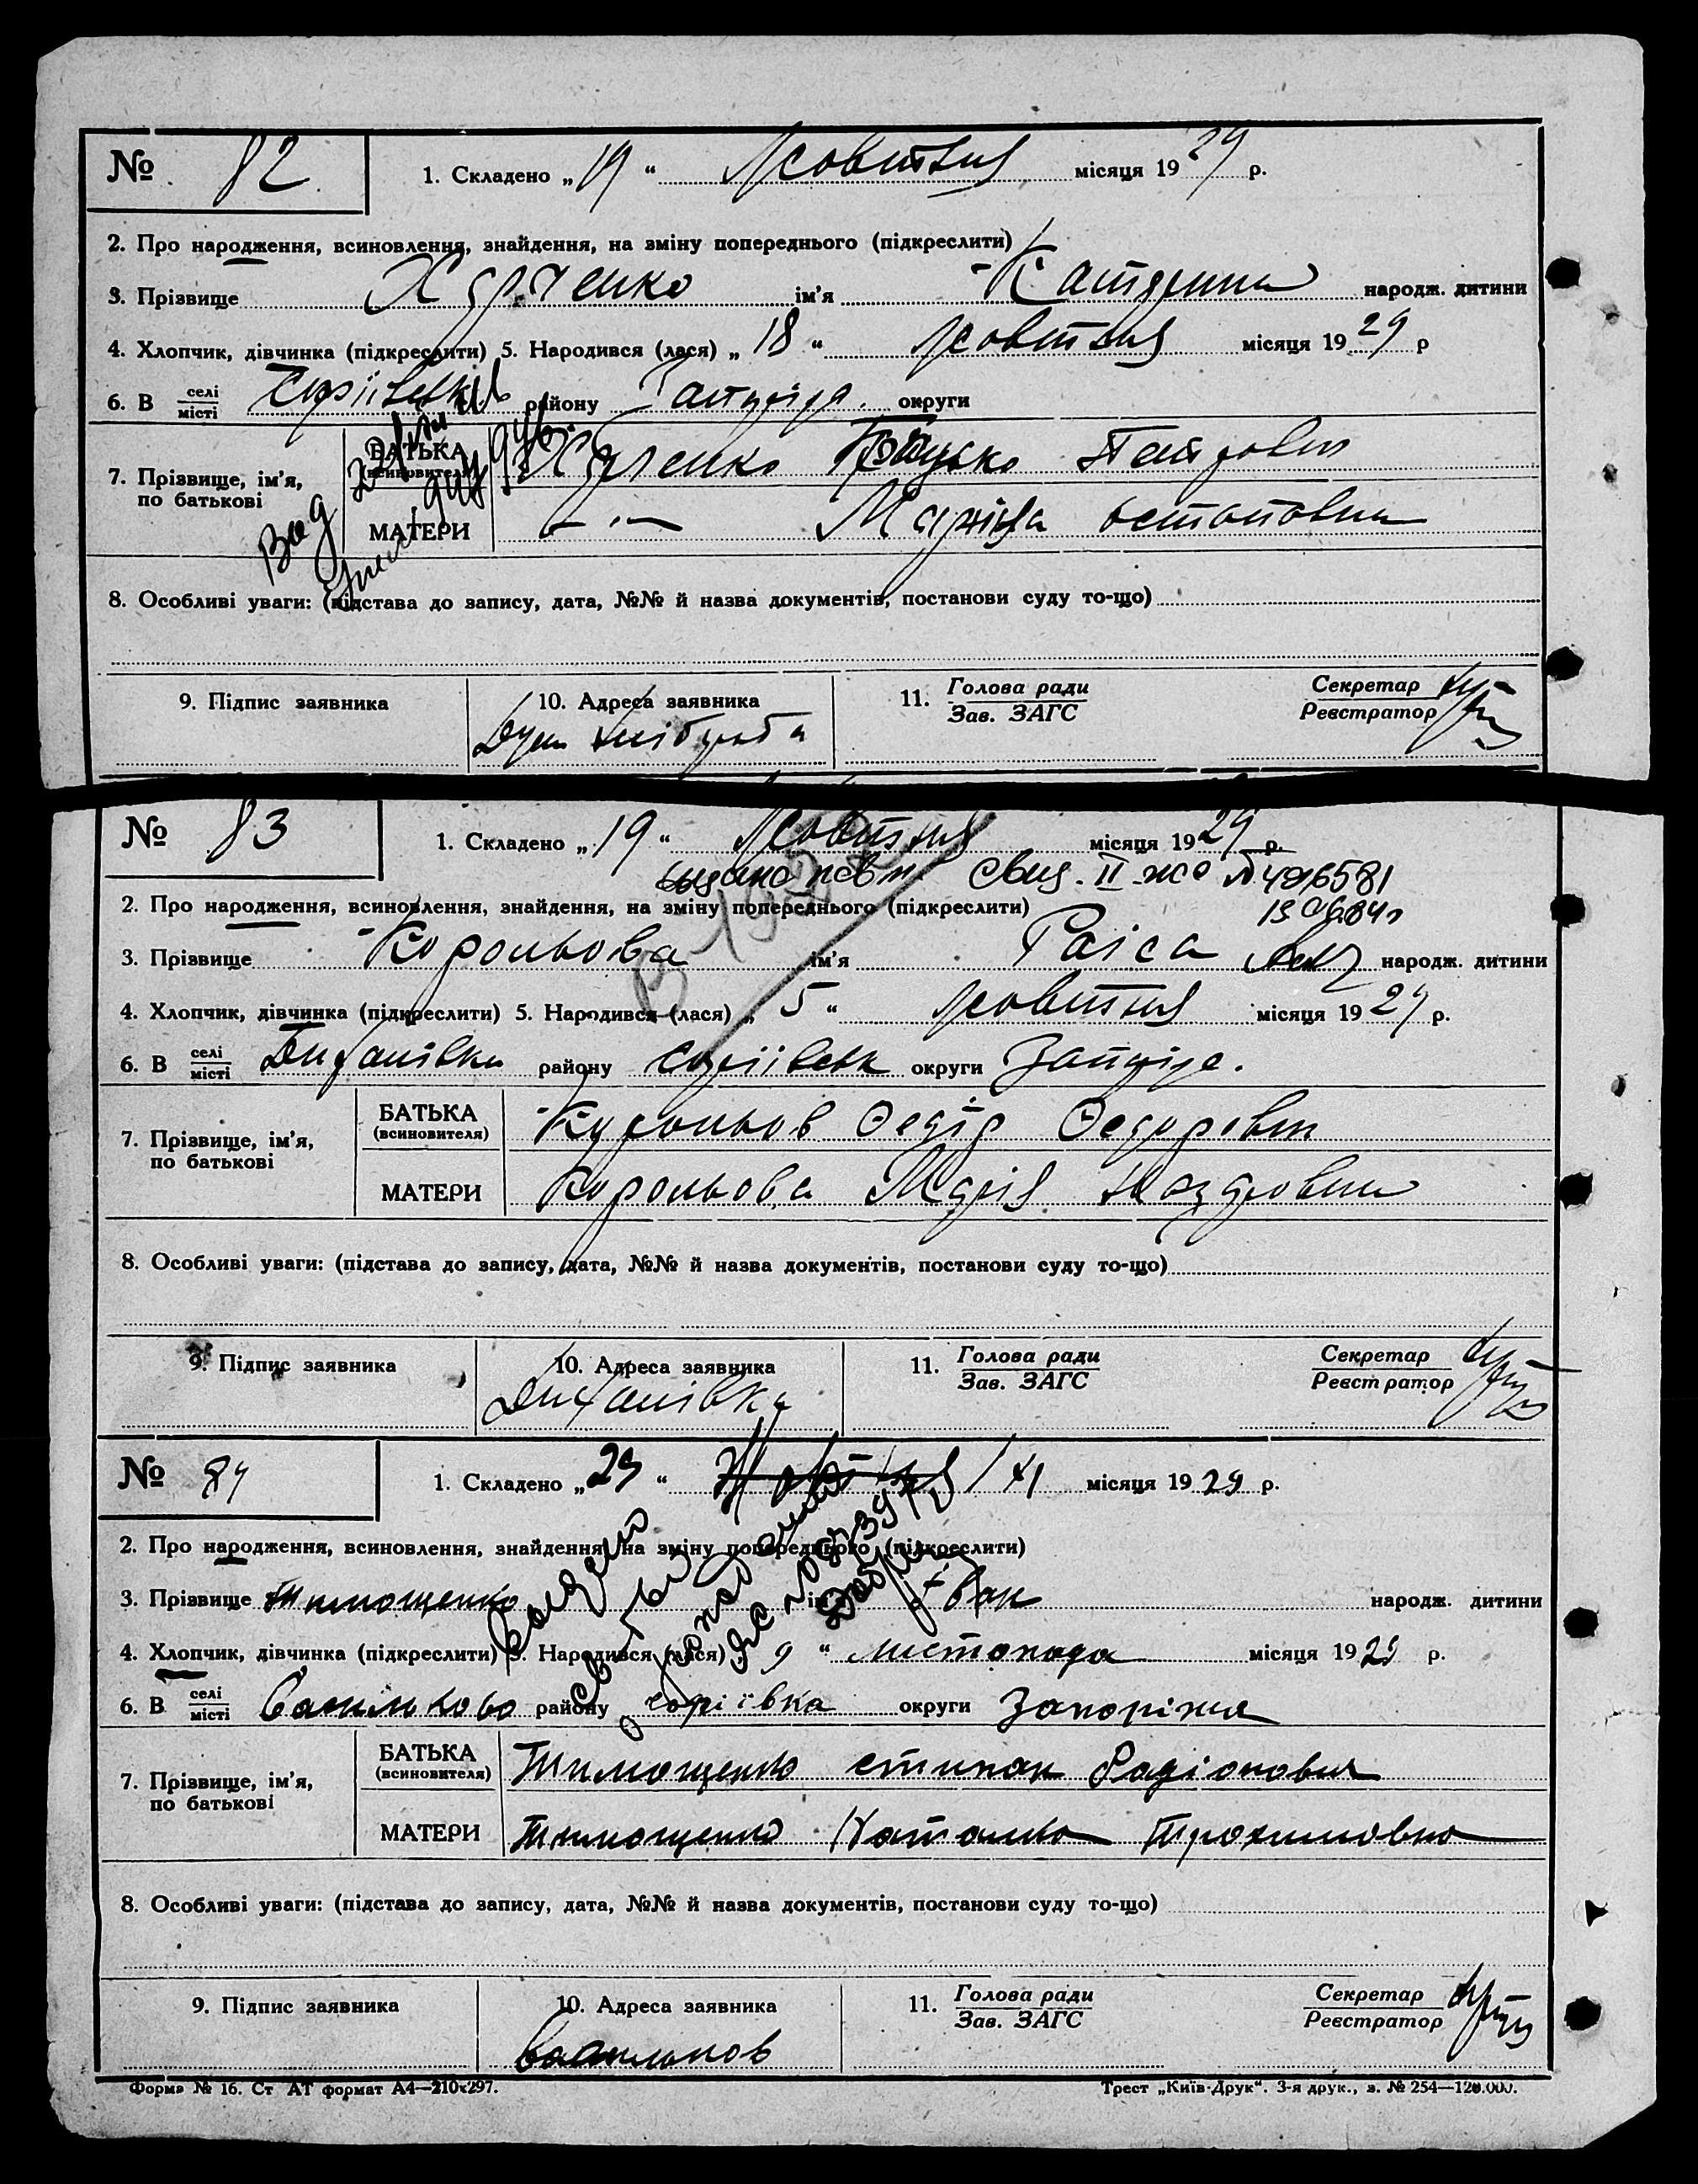 № 82 1. Складено „19“ Жовтня місяця 1929 р.
2. Про народження, всиновлення, знайдення, на зміну попереднього (підкреслити)
3. Прізвище Харченко ім'я Катерина народж. дитини
4. Хлопчик, дівчинка (підкреслити) 5. Народився (лася) „18“ жовтня місяця 1929 р
6. В селі/місті району округи
7. Прізвище, ім'я, по батькові
БАТЬКА (всиновителя) Харченко Петрович
МАТЕРИ —"— Остаповна
8. Особливі уваги: (підстава до запису, дата, №№ й назва документів, постанови суду то-що)
9. Підпис заявника 10. Адреса заявника 11. Голова ради/Зав. ЗАГС Секретар/Реєстратор
№ 83 1. Складено „19“ Жовтня місяця 1929 р.
повт. свид. II-жс № 496581
2. Про народження, всиновлення, знайдення, на зміну попереднього (підкреслити)
3. Прізвище Корольова ім'я Раіса народж. дитини
4. Хлопчик, дівчинка (підкреслити) 5. Народився (лася) „5“ жовтня місяця 1929 р.
6. В селі/місті району софіівськ округи Запоріж.
7. Прізвище, ім'я, по батькові
БАТЬКА (всиновителя) Корольов Федір Федорович
МАТЕРИ Корольова Марія
8. Особливі уваги: (підстава до запису, дата, №№ й назва документів, постанови суду то-що)
9. Підпис заявника 10. Адреса заявника 11. Голова ради/Зав. ЗАГС Секретар/Реєстратор
№ 84 1. Складено „29“ Жовтня / XI місяця 1929 р.
2. Про народження, всиновлення, знайдення, на зміну попереднього (підкреслити)
3. Прізвище Тимощенко ім'я Іван народж. дитини
4. Хлопчик, дівчинка (підкреслити) 5. Народився (лася) „9“ листопада місяця 1929 р.
6. В селі/місті Васильково району софіівка округи Запоріжя
7. Прізвище, ім'я, по батькові
БАТЬКА (всиновителя) Тимощенко степан Радіонович
МАТЕРИ Тимощенко Наталка Трохимовна
8. Особливі уваги: (підстава до запису, дата, №№ й назва документів, постанови суду то-що)
9. Підпис заявника 10. Адреса заявника 11. Голова ради/Зав. ЗАГС Секретар/Реєстратор
Васильков
Форма № 16. Ст АТ формат А4—210х297. Трест „Київ-Друк“. 3-я друк., з. № 254—120.000.